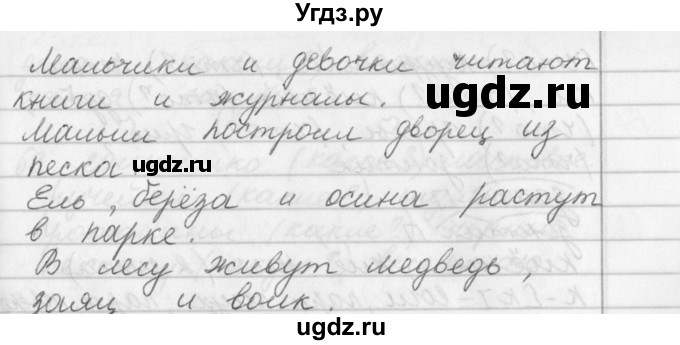 Угдз.ру
Мальчики и девочки читают
книги и журналы.
ugdz.ru
Малыш построил дворец из
песка
ugdz.ru
Ель, берёза и осина растут
в парке.
В лесу живут медведь,
заяц и волк.
ugdz.ru